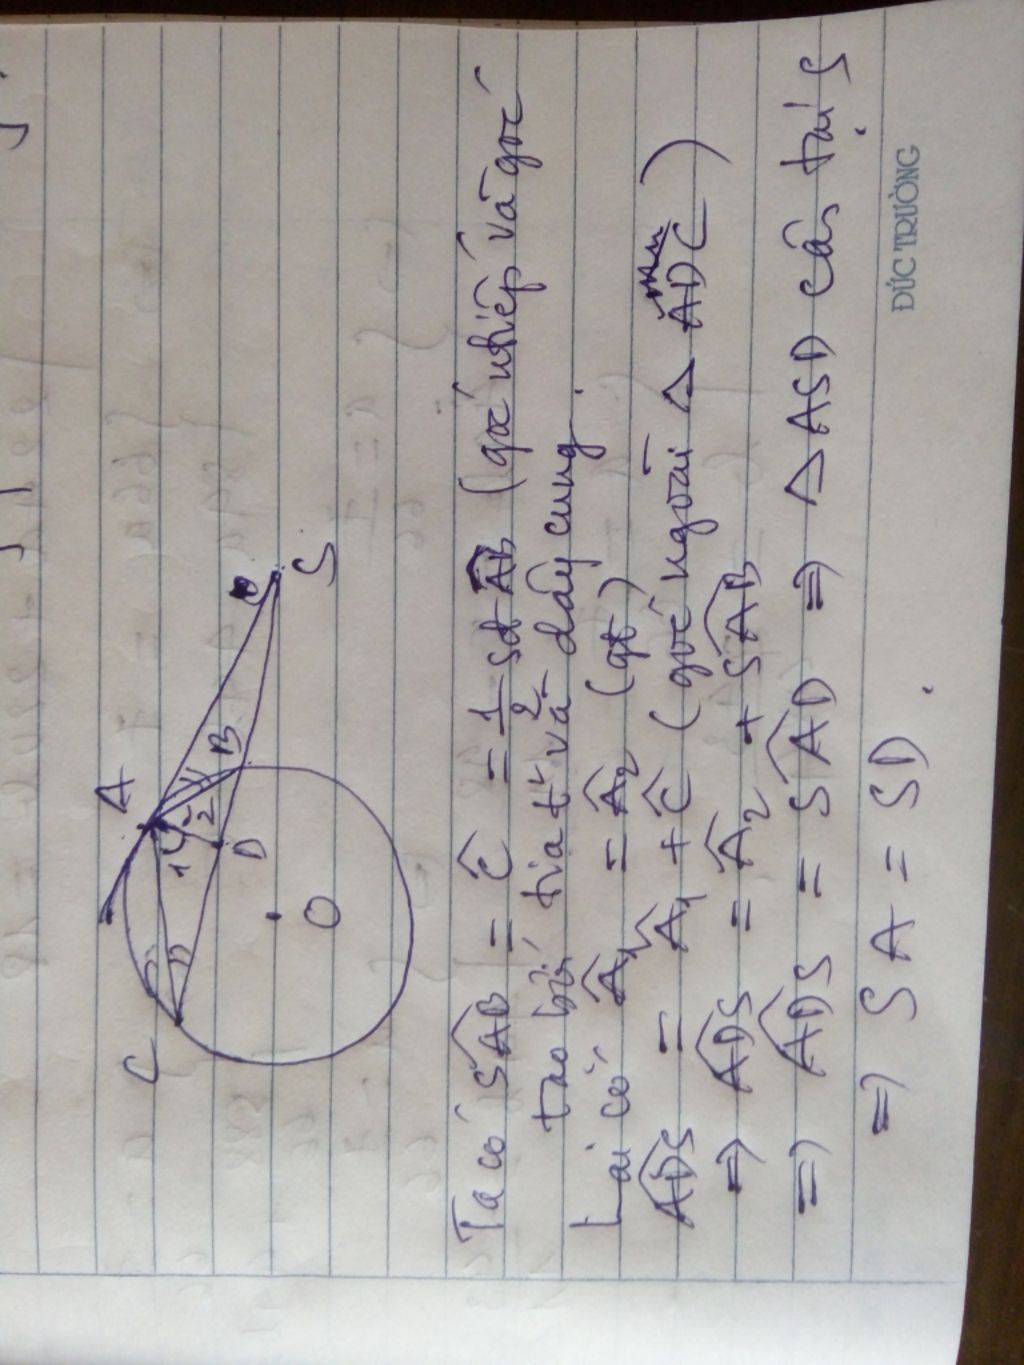 A
C
1
2
B
D
S
O
Ta có SAB = Ĉ = 1/2 sđ AB (góc nhiếp và góc
tạo bởi tia t² và dây cung.
Lại có Â1 = Â2 (gt)
ADS = Â1 + Ĉ (góc ngoài Δ ADC)
⇒ ADS = Â2 + SAB
⇒ ADS = SAD ⇒ Δ ASD cân tại S
⇒ SA = SD.
ĐỨC TRƯỜNG